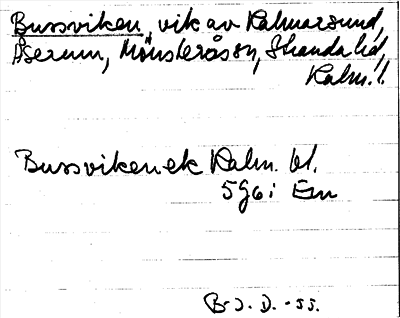 Bussviken, vik av Kalmarsund,
Åserum, Mönsterås sn, Stranda hd,
Kalm. l.
Bussviken ek Kalm. bl.
5 g 6 i Em
B-J. D. -55.